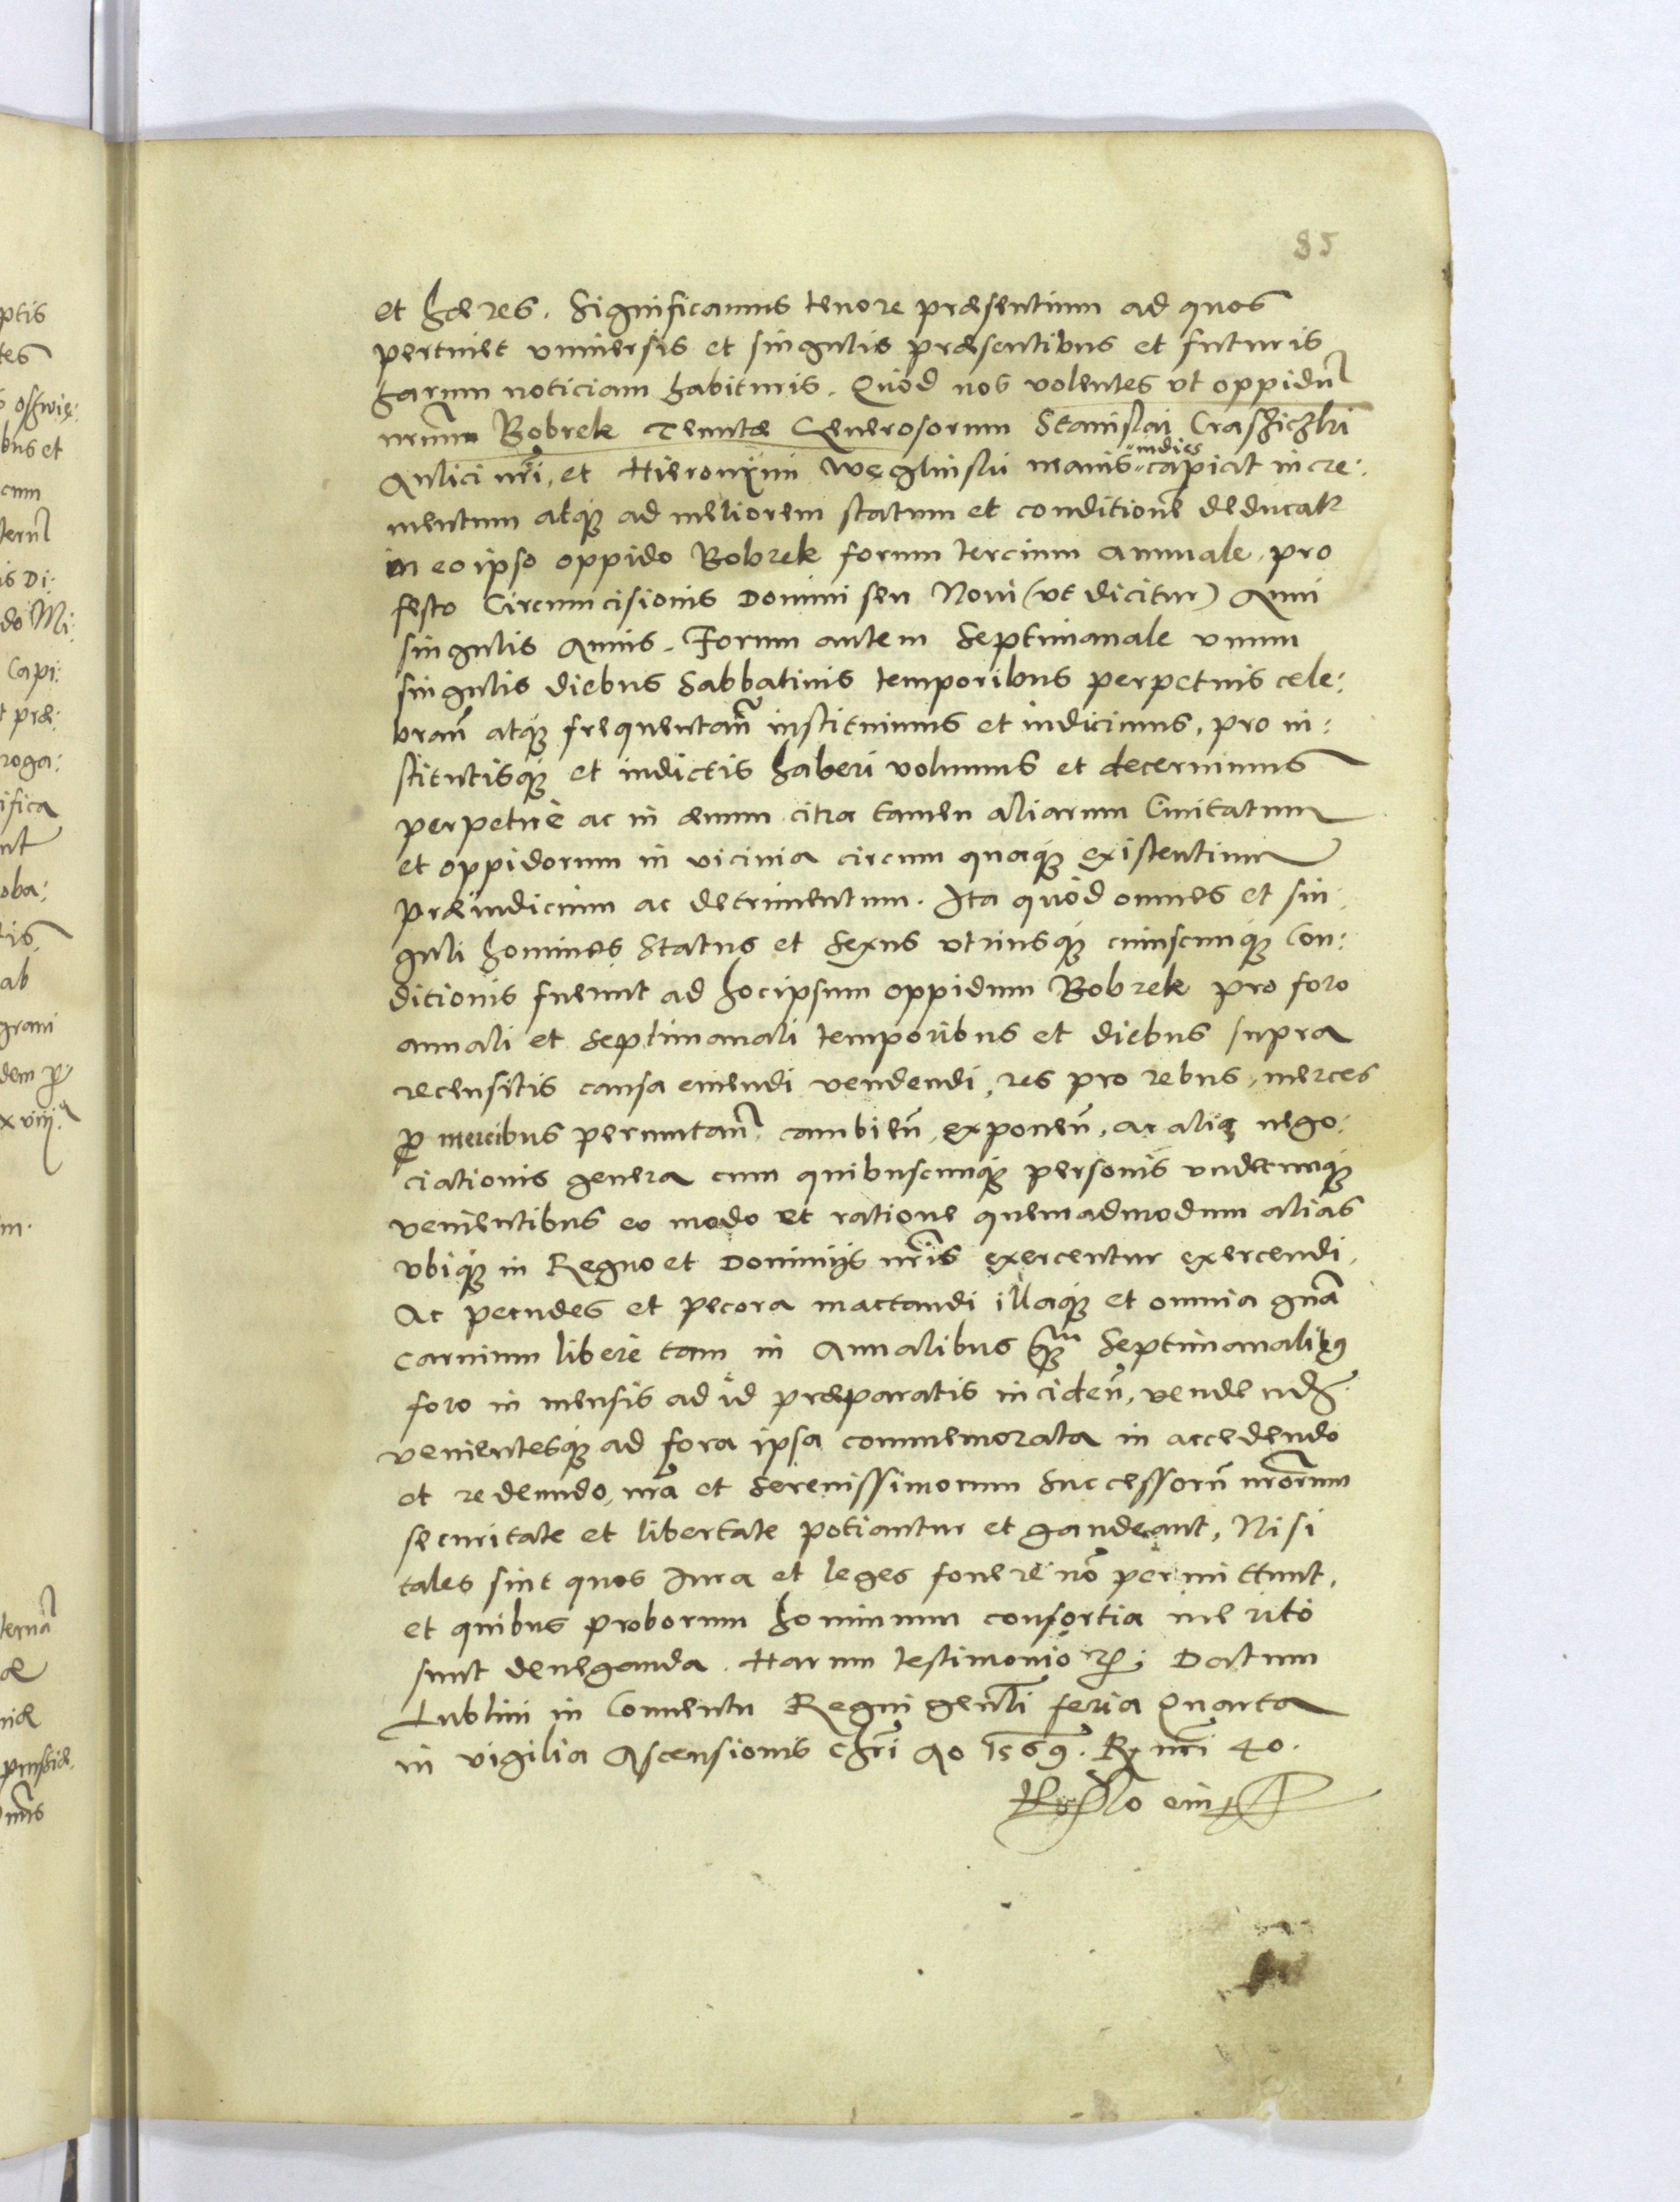 85
et hæres. Significamus tenore præsentium ad quos
pertinet vniuersis et singulis præsentibus et futuris
harum noticiam habituris. Quòd nos volentes vt oppidũ
nr̃um Bobrek Tenutæ Generosorum Stanislai Craszichzki
Aulici nr̃i, et Hieronÿmi Weglinski maius indies capiat incre:
mentum atq ad meliorem statum et conditionẽ deducatr
in eo ipso oppido Bobrek forum tercium annuale, pro
festo Circumcisionis Domini seu Noui (vt dicitur) Anni
singulis Annis. Forum autem Septimanale vnum
singulis diebus Sabbatinis temporibus perpetuis cele:
brañ atq frequentañ instituimus et indicimus, pro in:
stitutisq et indictis haberi volumus et decernimus
perpetuè ac in æuum citra tamen aliarum Ciuitatum
et oppidorum in vicinia circum quaq existentium
præiudicium ac detrimentum. Ita quòd omnes et sin
guli homines Status et Sexus vtriusq cuiuscunq Con:
ditionis fuerint ad hocipsum oppidum Bobrek pro foro
annali et Septimanali temporibus et diebus supra
recensitis causa emendi vendendi, res pro rebus, merces
p mercibus permutañ, cambieñ, exponeñ, ac aliq nego:
ciationis genera cum quibuscunq personis vndecunq
venientibus eo modo et ratione quemadmodum alias
vbiq in Regno et Dominijs nr̃is exercentur exercendi.
Ac pecudes et pecora mactandi illaq et omnia gñа
carnium liberè tam in Annalibus qm Septimanalibq
foro in mensis ad id præparatis incideñ, vendend
venientesq ad fora ipsa commemorata in accedendo
et redeundo, nr̃a et Serenissimorum Successorũ nr̃orum
securitate et libertate potiantur et gaudeant, Nisi
tales sint quos Iura et leges fouere nõ permittunt,
et quibus proborum hominum consortia meritò
sunt deneganda. Harum testimonio Datum
Lublini in Conuentu Regni geñli feria Quarta
in vigilia Ascensionis Chr̃i Ao 1569. R nr̃i 40.